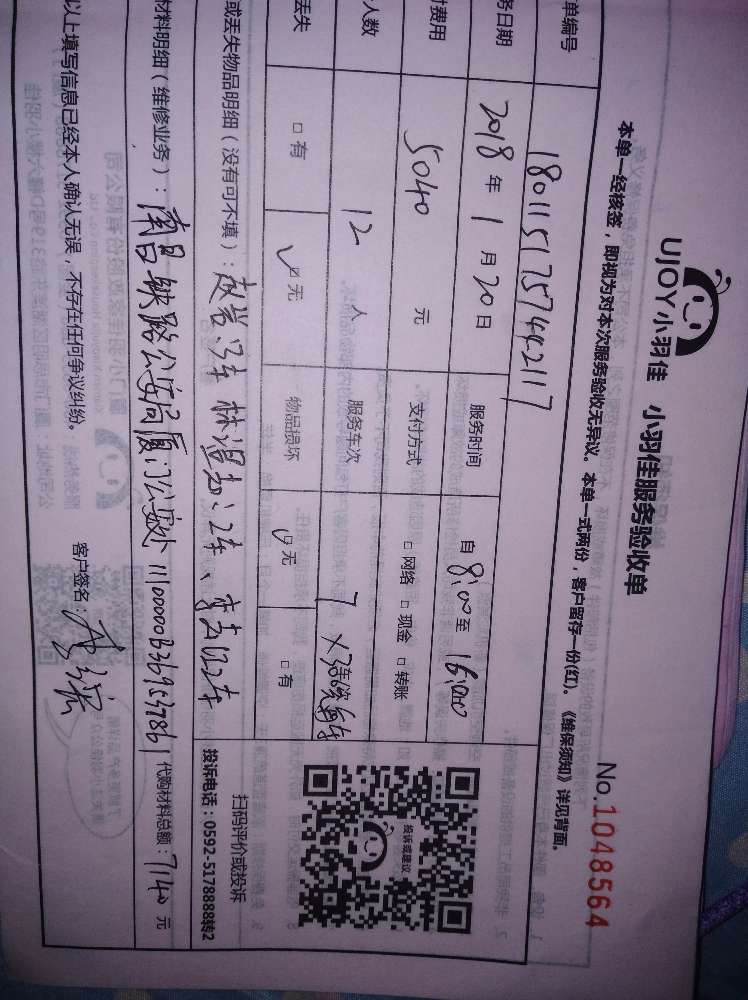 UJOY小羽佳 小羽佳服务验收单
No.1048564
本单一经核签，即视为对本次服务验收无异议。本单一式两份，客户留存一份(红)。《维保须知》详见背面。
单编号 18011517574442117
务日期 2018 年 1 月 20 日 服务时间 自 8:00 至 16:00
费用 5040 元 支付方式 □ 网络 □ 现金 □ 转账
人数 12 人 服务车次 7
丢失 □ 有 ☑ 无 物品损坏 ☑ 无 □ 有
投诉或建议
扫码评价或投诉
投诉电话：0592-5178888转2
或丢失物品明细（没有可不填）：
材料明细（维修业务）：南昌铁路公安局厦门公安处 代购材料总额：7140 元
以上填写信息已经本人确认无误，不存在任何争议纠纷。 客户签名：